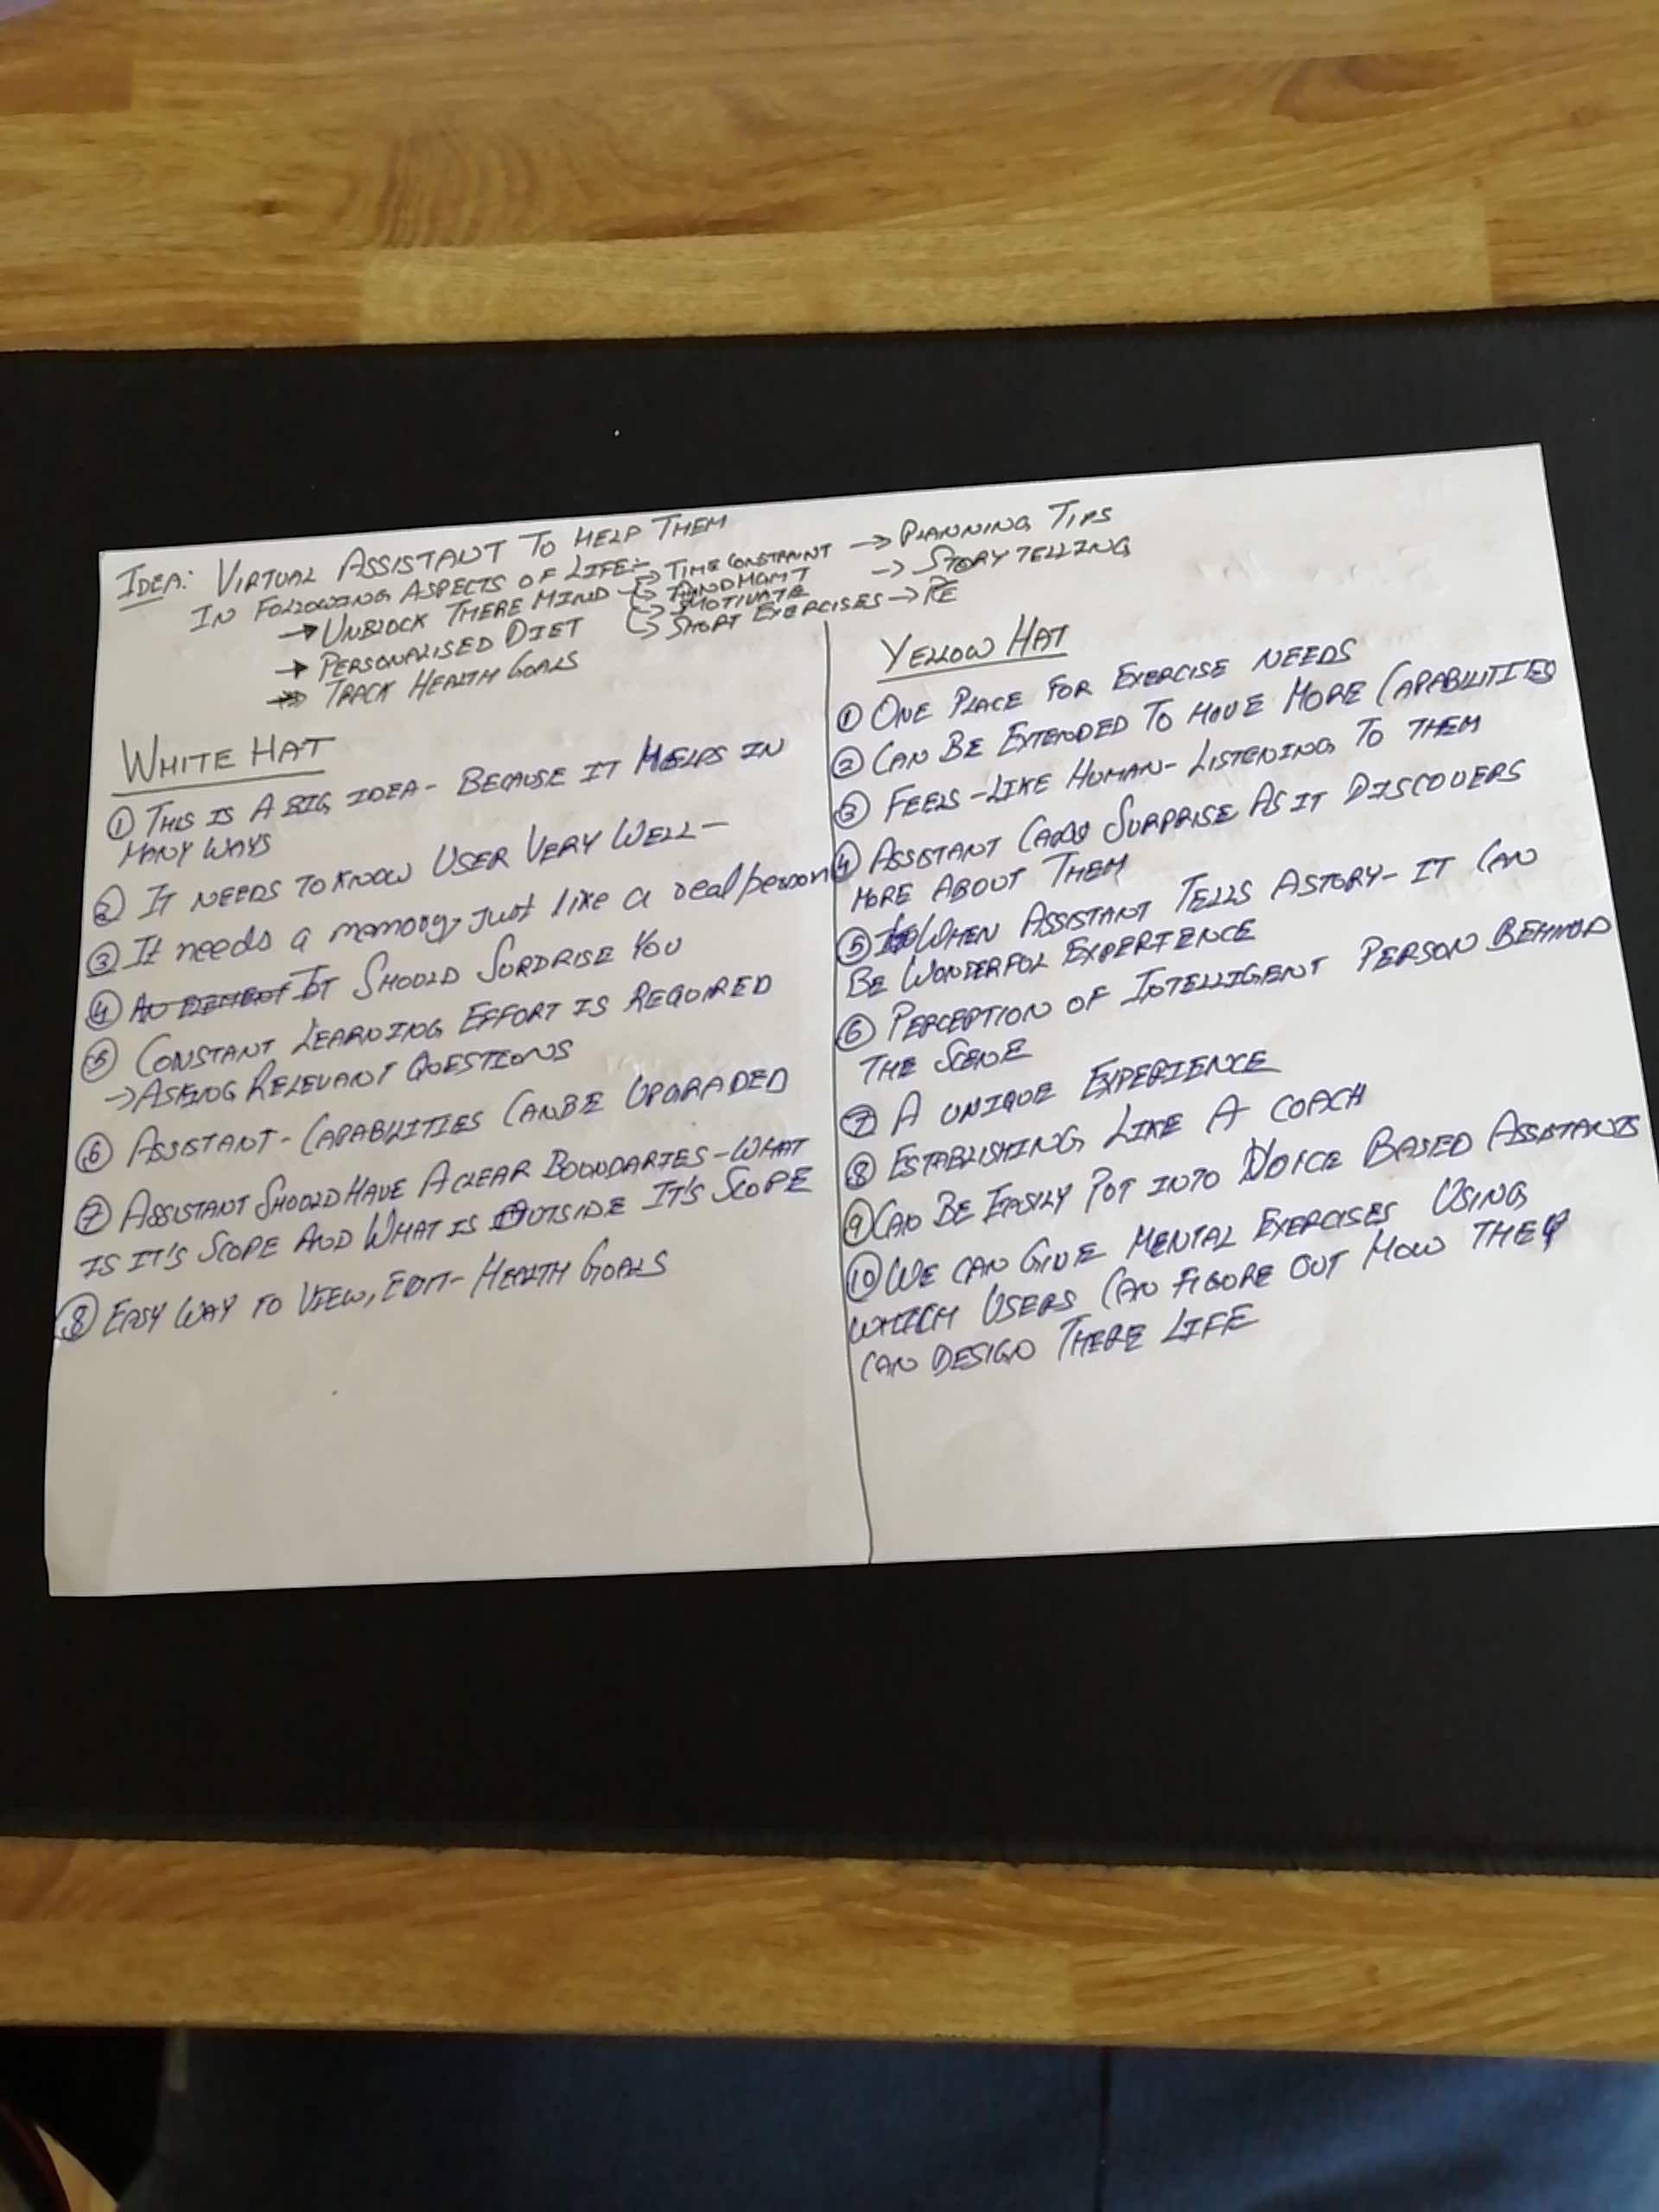 IDEA: VIRTUAL ASSISTANT TO HELP THEM
IN FOLLOWING ASPECTS OF LIFE:-
→ UNBLOCK THERE MIND
→ TIME CONSTRAINT → PLANNING TIPS
MGMT
→ MOTIVATE → STORY TELLING
→ SHORT EXERCISES → PE
→ PERSONALISED DIET
→ TRACK HEALTH GOALS
WHITE HAT
① THIS IS A BIG IDEA - BECAUSE IT HELPS IN
MANY WAYS
② IT NEEDS TO KNOW USER VERY WELL -
③ It needs a memory just like a real person
④ IT SHOULD SURPRISE YOU
⑤ CONSTANT LEARNING EFFORT IS REQUIRED
→ ASKING RELEVANT QUESTIONS
⑥ ASSISTANT - CAPABILITIES CAN BE UPGRADED
⑦ ASSISTANT SHOULD HAVE A CLEAR BOUNDARIES - WHAT
IS IT'S SCOPE AND WHAT IS OUTSIDE IT'S SCOPE
⑧ EASY WAY TO VIEW, EDIT - HEALTH GOALS
YELLOW HAT
① ONE PLACE FOR EXERCISE NEEDS
② CAN BE EXTENDED TO HAVE MORE CAPABILITIES
③ FEELS - LIKE HUMAN - LISTENING TO THEM
④ ASSISTANT CAN SURPRISE AS IT DISCOVERS
MORE ABOUT THEM
⑤ WHEN ASSISTANT TELLS A STORY - IT CAN
BE WONDERFUL EXPERIENCE
⑥ PERCEPTION OF INTELLIGENT PERSON BEHIND
THE SCENE
⑦ A UNIQUE EXPERIENCE
⑧ ESTABLISHING LIKE A COACH
⑨ CAN BE EASILY PUT INTO VOICE BASED ASSISTANTS
⑩ WE CAN GIVE MENTAL EXERCISES USING
WHICH USERS CAN FIGURE OUT HOW THEY
CAN DESIGN THERE LIFE